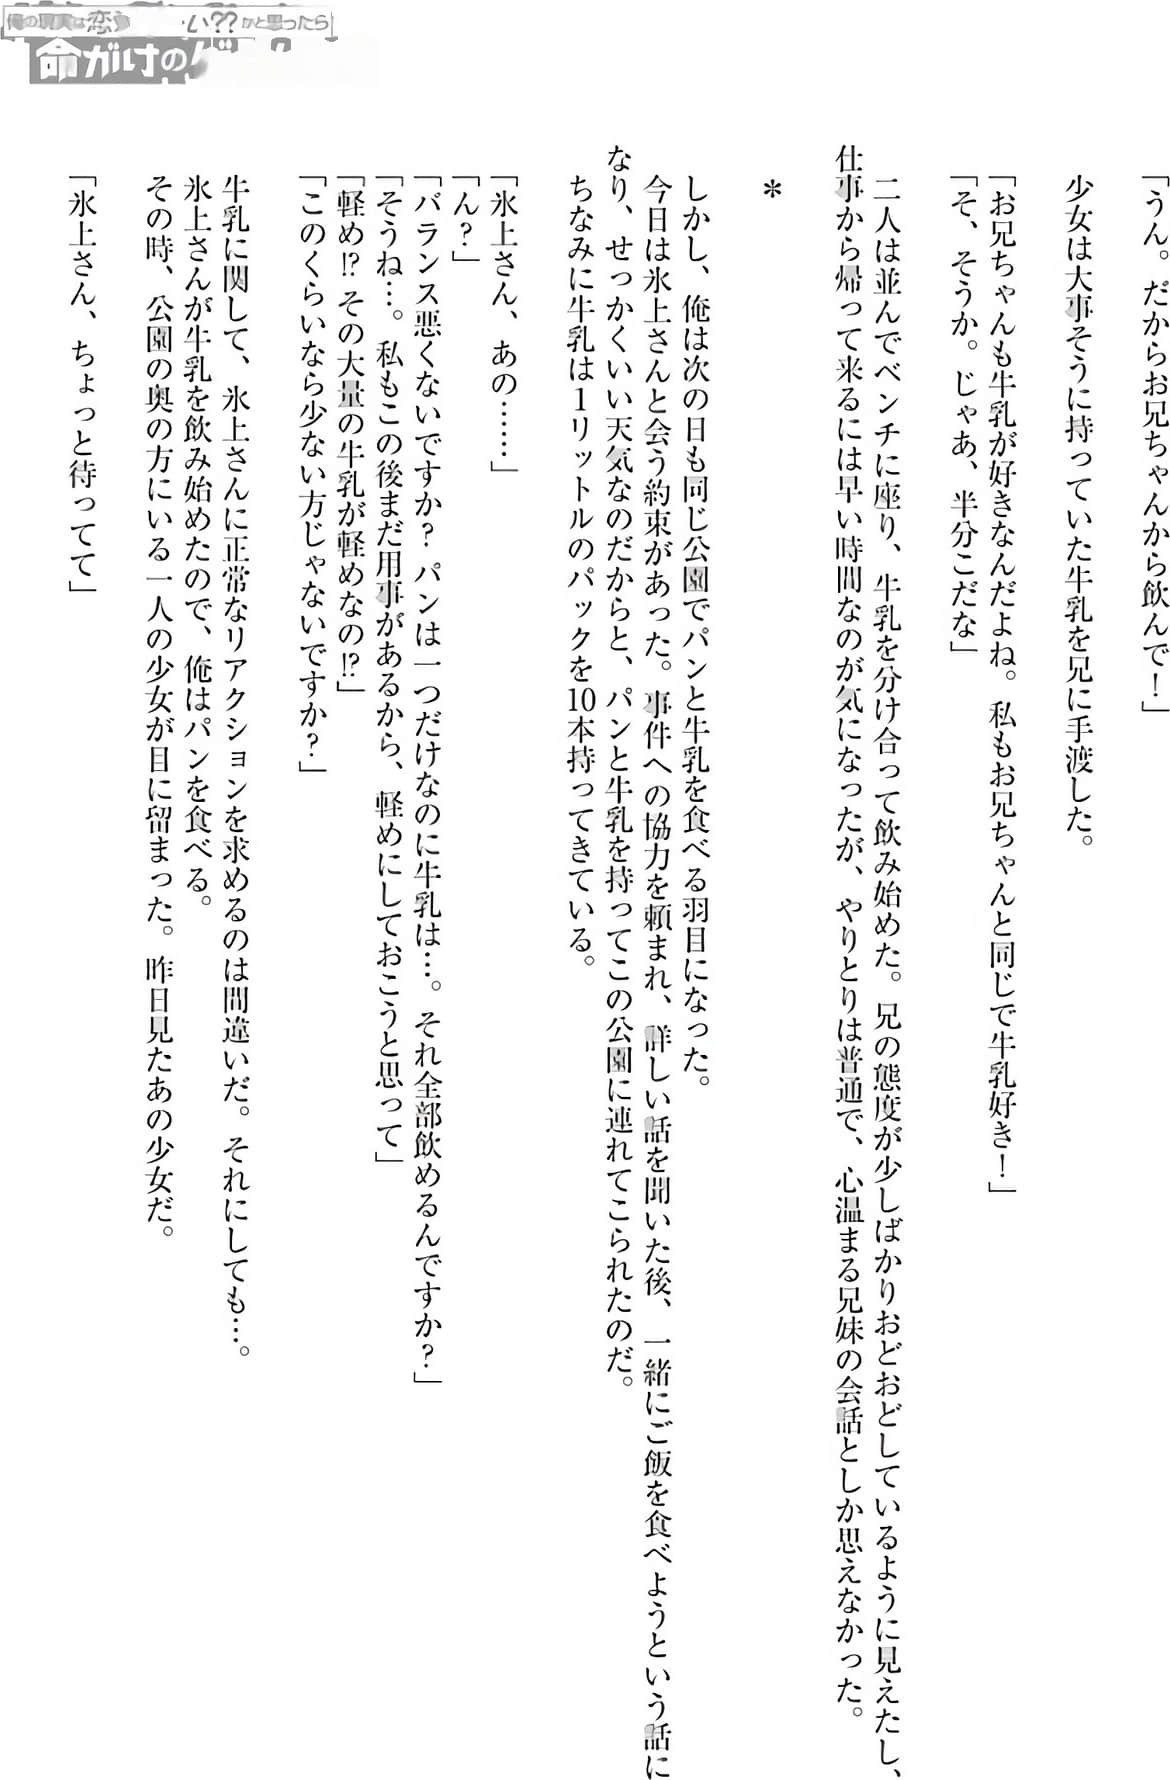 俺の現実は恋
い??かと思ったら
命がけの
「うん。だからお兄ちゃんから飲んで！」
少女は大事そうに持っていた牛乳を兄に手渡した。
「お兄ちゃんも牛乳が好きなんだよね。私もお兄ちゃんと同じで牛乳好き！」
「そ、そうか。じゃあ、半分こだな」
二人は並んでベンチに座り、牛乳を分け合って飲み始めた。兄の態度が少しばかりおどおどしているように見えたし、
仕事から帰って来るには早い時間なのが気になったが、やりとりは普通で、心温まる兄妹の会話としか思えなかった。
＊
しかし、俺は次の日も同じ公園でパンと牛乳を食べる羽目になった。
今日は氷上さんと会う約束があった。事件への協力を頼まれ、詳しい話を聞いた後、一緒にご飯を食べようという話に
なり、せっかくいい天気なのだからと、パンと牛乳を持ってこの公園に連れてこられたのだ。
ちなみに牛乳は1リットルのパックを10本持ってきている。
「氷上さん、あの……」
「ん？」
「バランス悪くないですか？ パンは一つだけなのに牛乳は…。それ全部飲めるんですか？」
「そうね…。私もこの後まだ用事があるから、軽めにしておこうと思って」
「軽め!? その大量の牛乳が軽めなの!?」
「このくらいなら少ない方じゃないですか？」
牛乳に関して、氷上さんに正常なリアクションを求めるのは間違いだ。それにしても…。
氷上さんが牛乳を飲み始めたので、俺はパンを食べる。
その時、公園の奥の方にいる一人の少女が目に留まった。昨日見たあの少女だ。
「氷上さん、ちょっと待ってて」